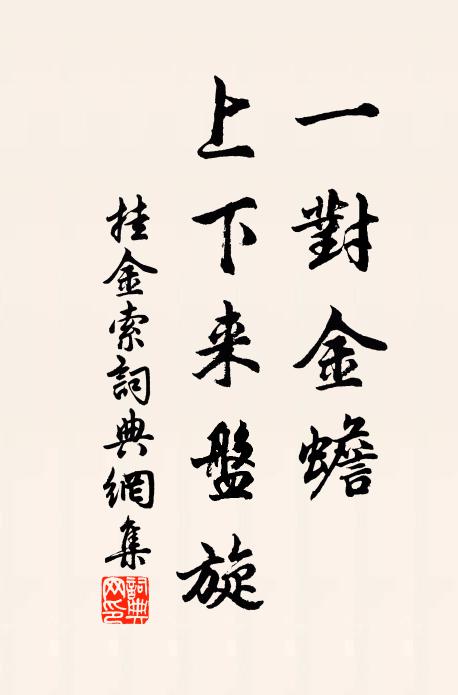 一對金蟾
上下来盤旋
挂金索詞典網集
詞典网印